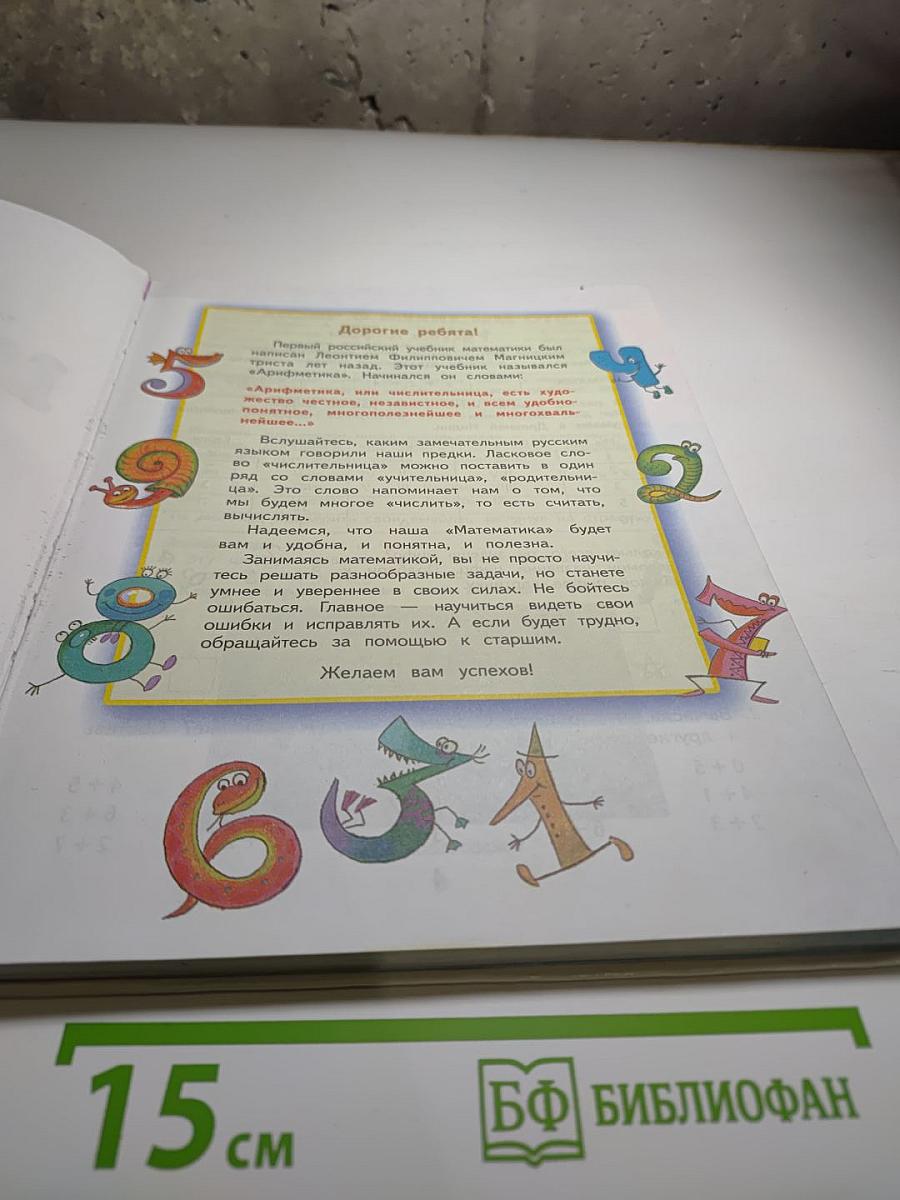 Дорогие ребята!
Первый российский учебник математики был
написан Леонтием Филипповичем Магницким
триста лет назад. Этот учебник назывался
«Арифметика». Начинался он словами:
«Арифметика, или числительница, есть худо-
жество честное, независтное, и всем удобно-
понятное, многополезнейшее и многохваль-
нейшее...»
Вслушайтесь, каким замечательным русским
языком говорили наши предки. Ласковое сло-
во «числительница» можно поставить в один
ряд со словами «учительница», «родительни-
ца». Это слово напоминает нам о том, что
мы будем многое «числить», то есть считать,
вычислять.
Надеемся, что наша «Математика» будет
вам и удобна, и понятна, и полезна.
Занимаясь математикой, вы не просто научи-
тесь решать разнообразные задачи, но станете
умнее и увереннее в своих силах. Не бойтесь
ошибаться. Главное — научиться видеть свои
ошибки и исправлять их. А если будет трудно,
обращайтесь за помощью к старшим.
Желаем вам успехов!
5
4
9
2
8
7
6 3 1
15 см
БФ БИБЛИОФАН